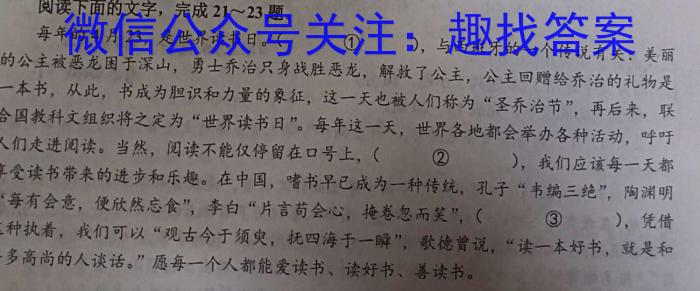 阅读下面的文字，完成21～23题
微信公众号关注：趣找答案
每年的 月23 是世界读书日。 ① )，与 班牙的一个传说有关：美丽
的公主被恶龙困于深山，勇士乔治只身战胜恶龙，解救了公主，公主回赠给乔治的礼物是
一本书，从此，书成为胆识和力量的象征，这一天也被人们称为“圣乔治节”，再后来，联
合国教科文组织将之定为“世界读书日”。每年这一天，世界各地都会举办各种活动，呼吁
人们走进阅读。当然，阅读不能仅停留在口号上，( ② )，我们应该每一天都
享受读书带来的进步和乐趣。在中国，嗜书早已成为一种传统，孔子“韦编三绝”，陶渊明
“每有会意，便欣然忘食”，李白“片言苟会心，掩卷忽而笑”，( ③ )，凭借
这种执着，我们可以“观古今于须臾，抚四海于一瞬”，歌德曾说，“读一本好书，就是和
多高尚的人谈话。”愿每一个人都能爱读书、读好书、善读书。